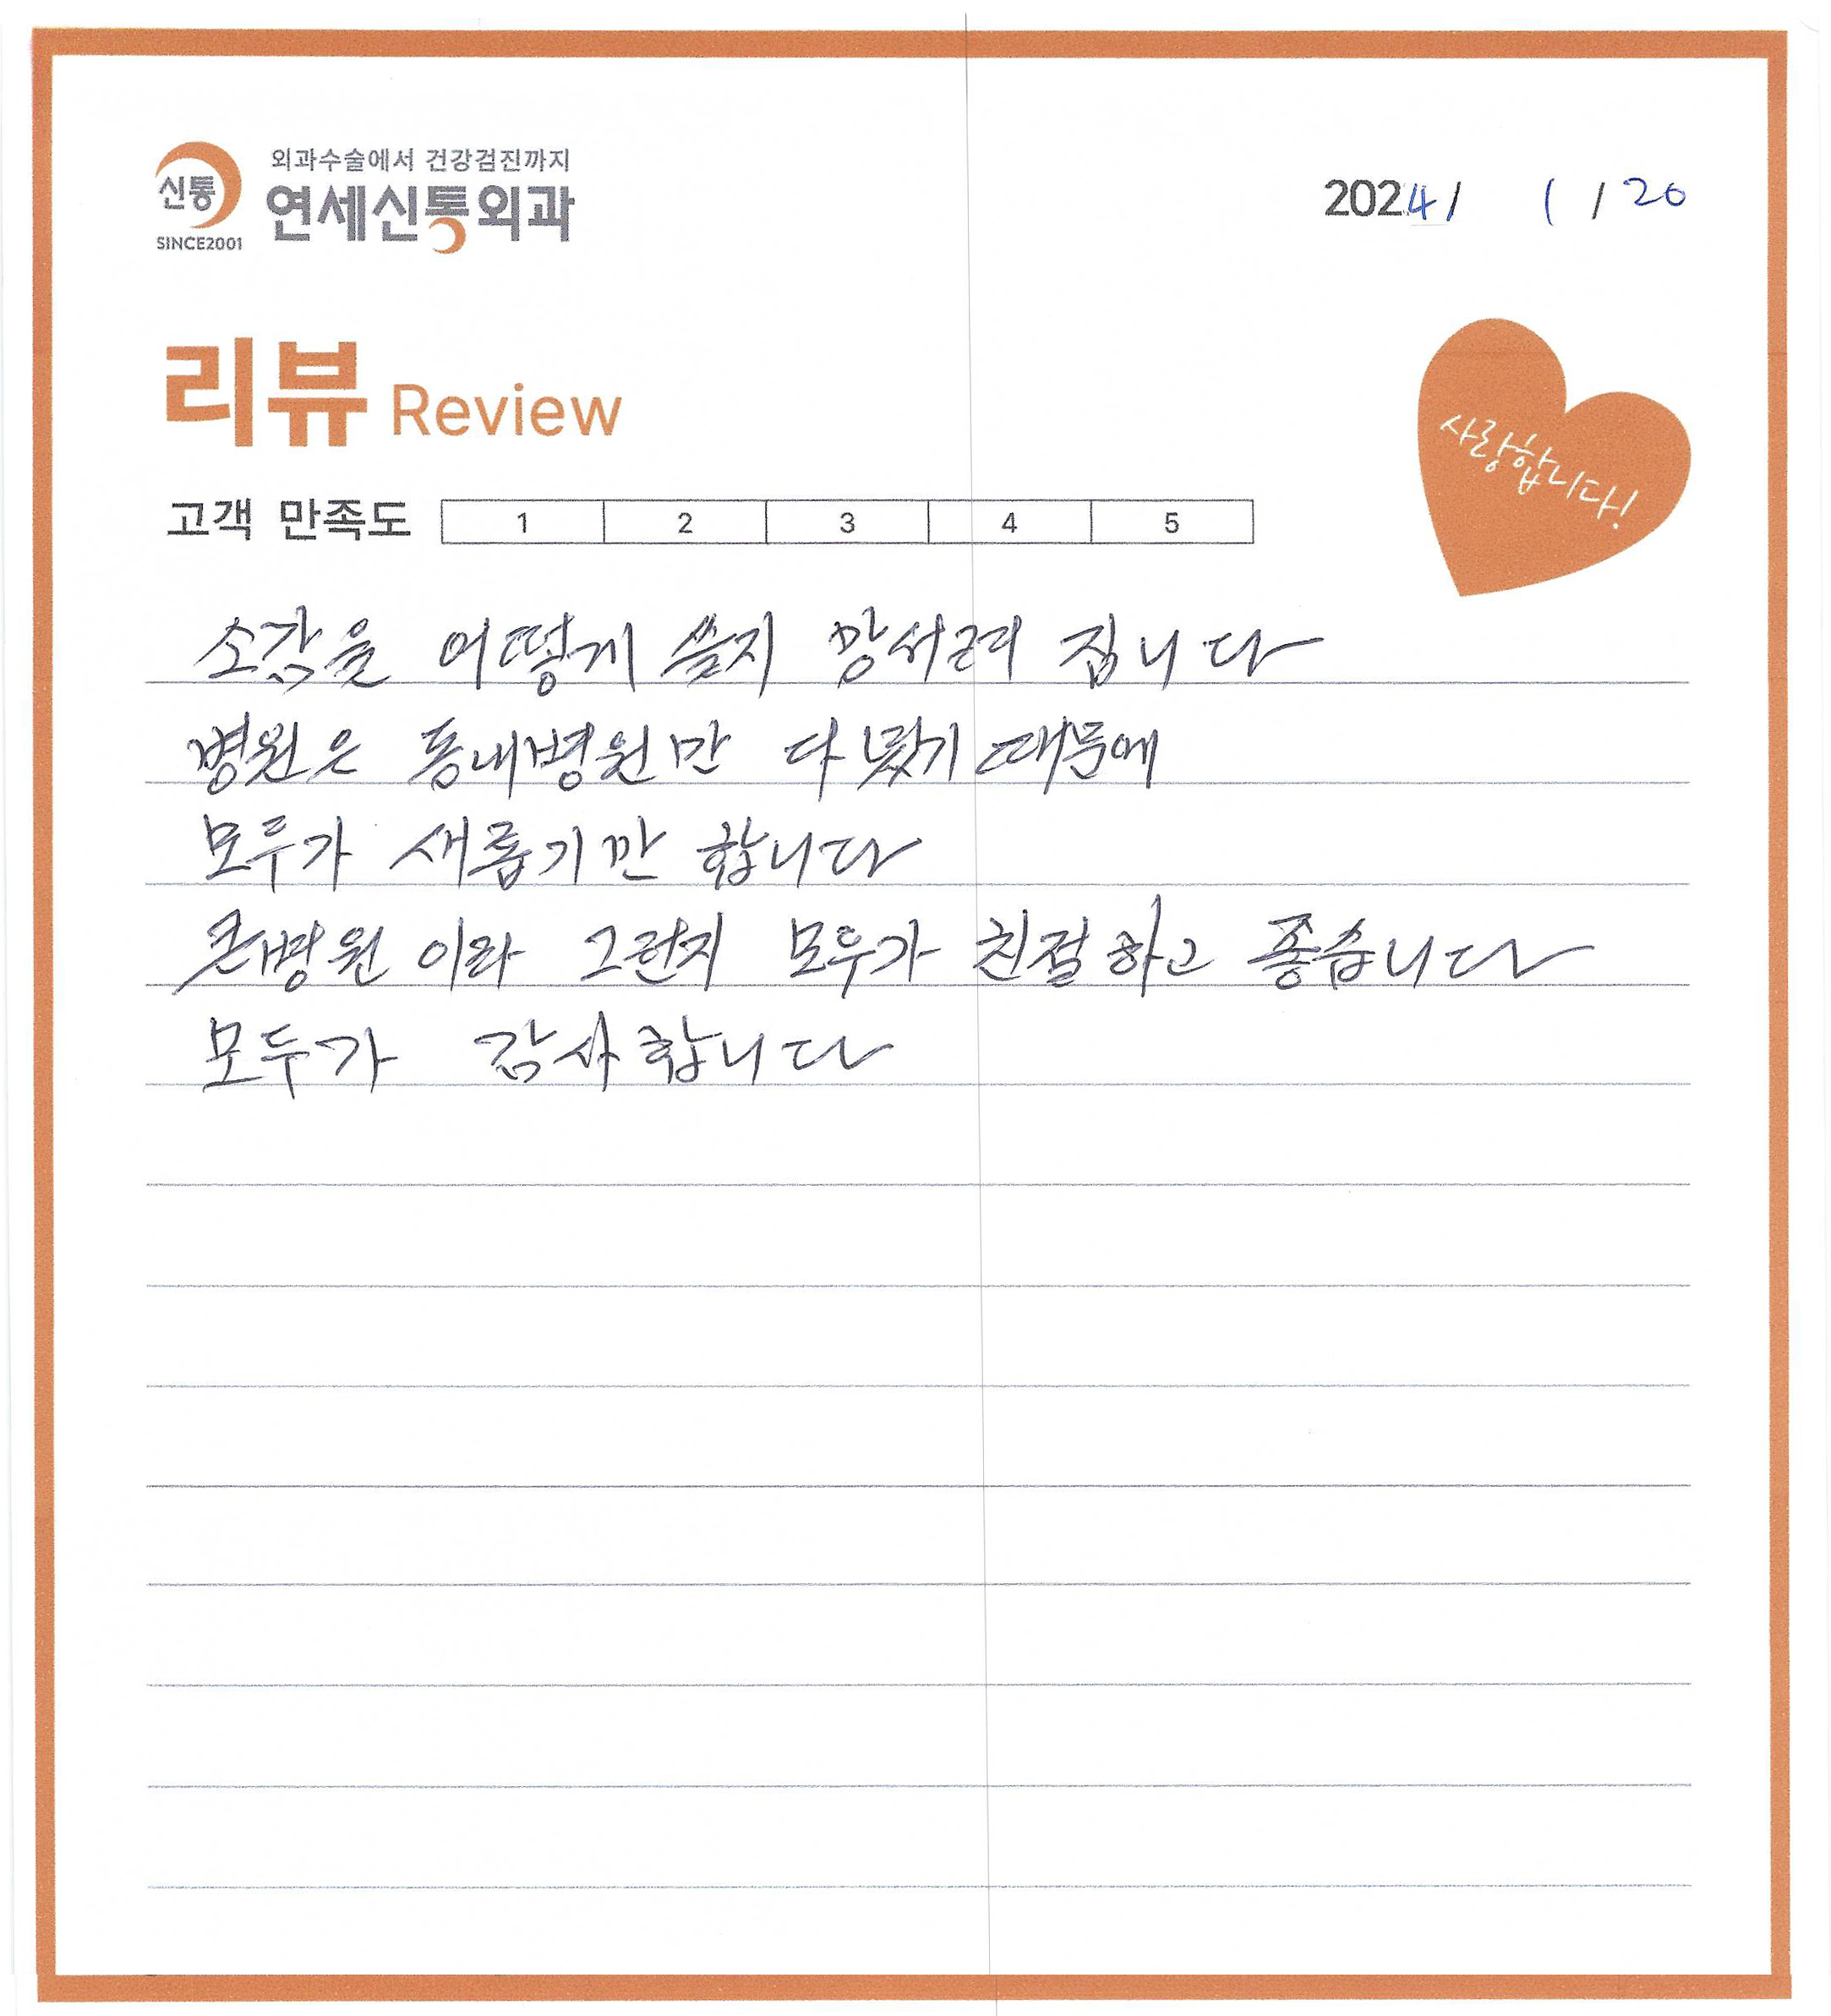 외과수술에서 건강검진까지
신통 연세신통외과
SINCE2001
2024/ 1 / 20
리뷰 Review
사랑합니다!
고객 만족도 1 2 3 4 5
소감을 어떻게 쓸지 망서려 집니다
병원은 동내병원만 다녔기 때문에
모두가 새롭기만 합니다
큰병원 이라 그런지 모두가 친절하고 좋습니다
모두가 감사합니다